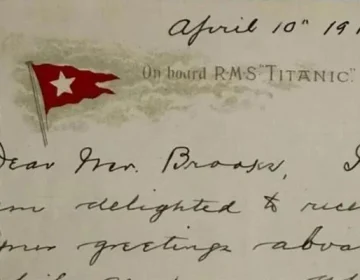 April 10" 191
On board R.M.S "TITANIC".
Dear Mr. Brooks, I
am delighted to rece
your greetings aboa